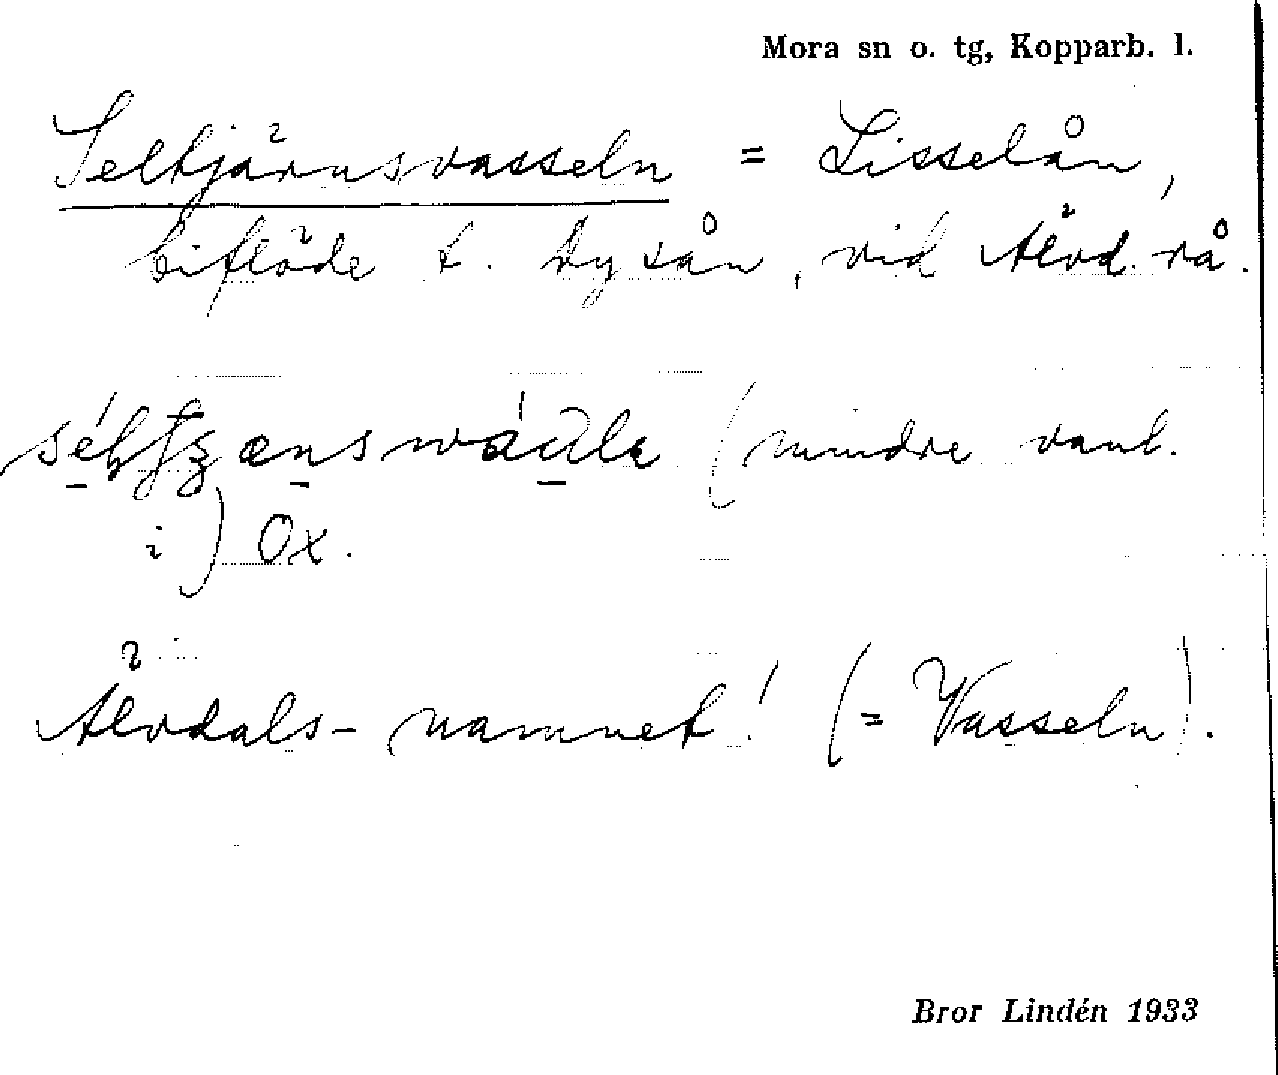 Mora sn o. tg, Kopparb. l.
Seltjärnsvasseln = Lisselån,
biflöde t. Dysån, vid Älvd. rå.
(mindre vanl.
i) Ox.
Älvdals-namnet! (= Vasseln).
Bror Lindén 1933